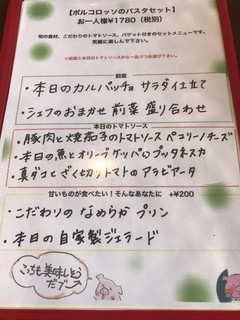 【ポルコロッソのパスタセット】
お一人様¥1780（税別）
旬の食材、こだわりのトマトソース、バゲット付きのセットメニューです。
気軽に楽しんで下さい。
前菜
・本日のカルパッチョ サラダ仕立て
・シェフのおまかせ 前菜 盛り合わせ
本日のトマトソース
・豚肉と焼茄子のトマトソース ペコリーノチーズ
・本日の魚とオリーブ ケッパーのプッタネスカ
・真ダコとざく切りトマトのアラビアータ
甘いものが食べたい！そんなあなたに +¥200
・こだわりの なめらか プリン
・本日の自家製ジェラード
こっちも美味しそう
だブー